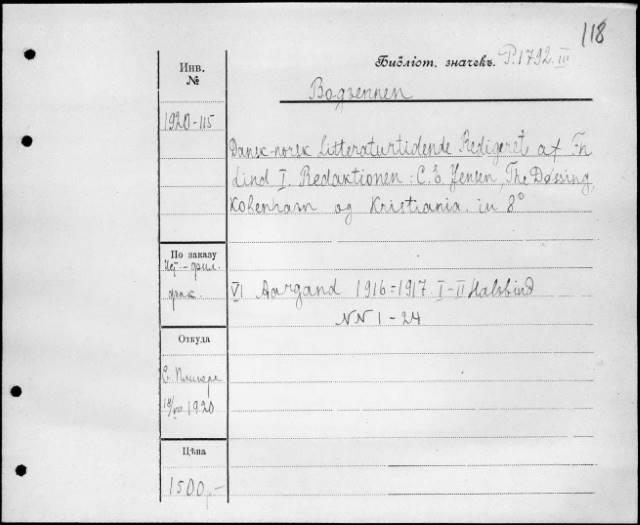 118
Библіот. значекъ. P.1792.III
Инв.
№
Bogvennen
1920-115
Dansk-norsk Litteraturtidende Redigeret af Th
Lind I. Redaktionen: C.E. Jensen, The Døssing,
Kobenhavn og Kristiania. in 8°
По заказу
Ист-фил.
фак.
VI Aargand 1916=1917. I-II Halvbind
NN 1-24
Откуда
1920
Цѣна
1500,-